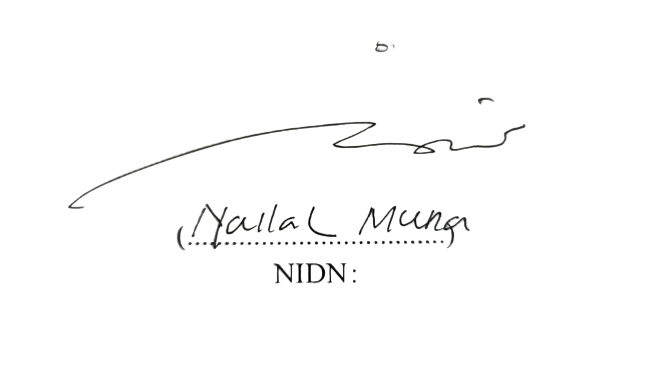 (Nailal Muna)
NIDN: